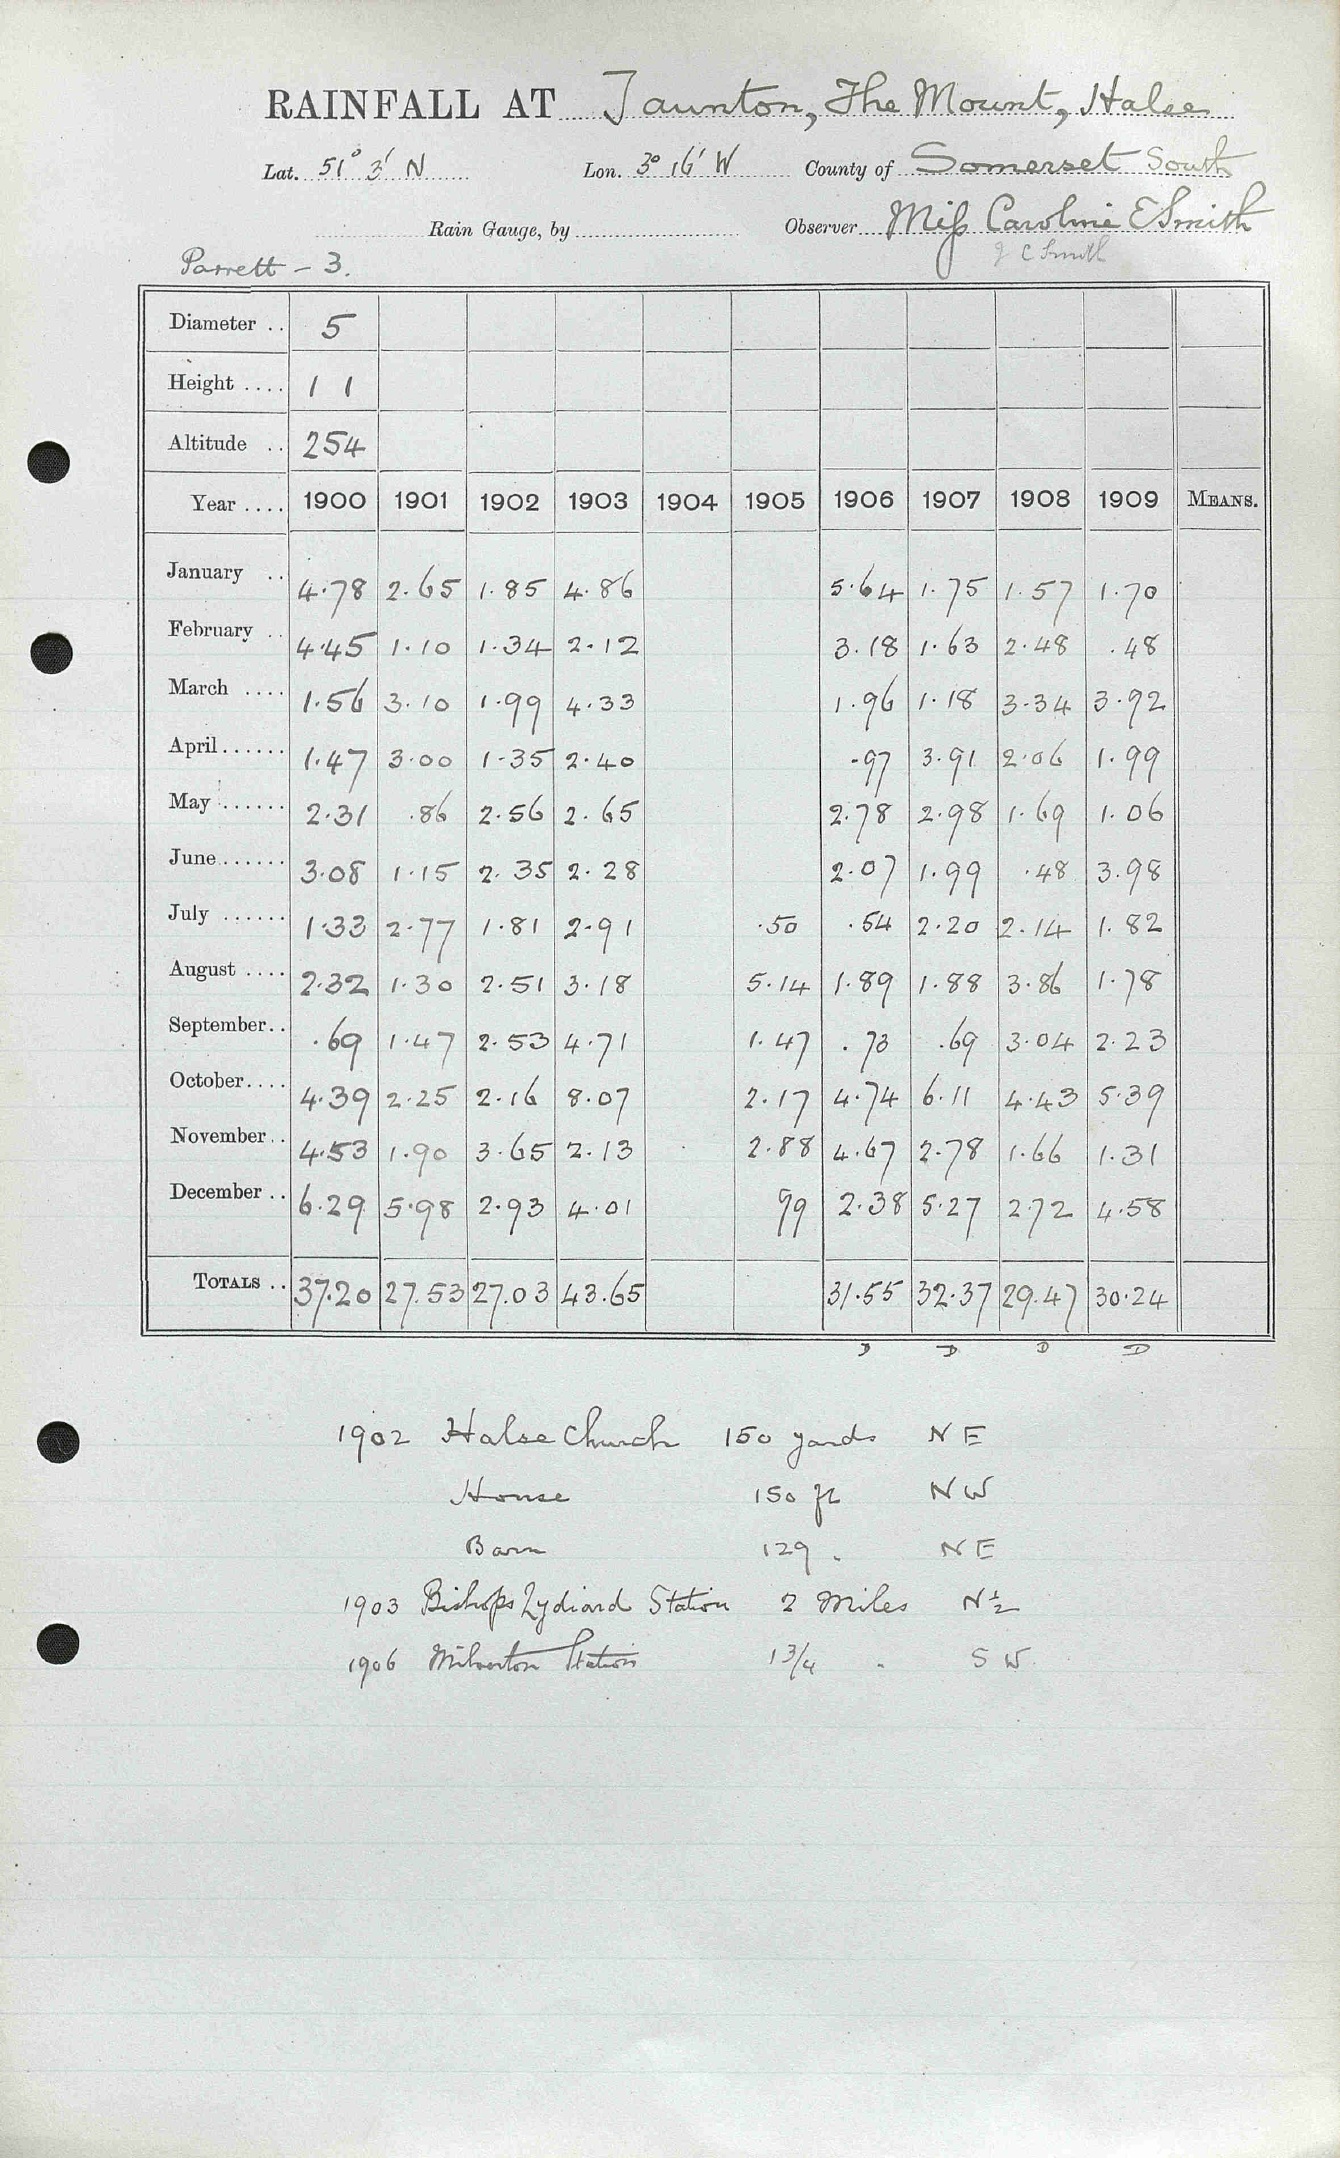 RAINFALL AT Taunton, The Mount, Halse
Lat. 51° 3' N Lon. 3° 16' W County of Somerset South
Rain Gauge, by Observer Miss Caroline E Smith
C Smith
Parrett - 3.
Diameter .. 5
Height .... 1 1
Altitude .. 254
Year .... 1900 1901 1902 1903 1904 1905 1906 1907 1908 1909 MEANS.
January .. 4.78 2.65 1.85 4.86 5.64 1.75 1.57 1.70
February .. 4.45 1.10 1.34 2.12 3.18 1.63 2.48 .48
March .... 1.56 3.10 1.99 4.33 1.96 1.18 3.34 3.92
April ...... 1.47 3.00 1.35 2.40 .97 3.91 2.06 1.99
May ...... 2.31 .86 2.56 2.65 2.78 2.98 1.69 1.06
June ...... 3.08 1.15 2.35 2.28 2.07 1.99 .48 3.98
July ...... 1.33 2.77 1.81 2.91 .50 .54 2.20 2.14 1.82
August .... 2.32 1.30 2.51 3.18 5.14 1.89 1.88 3.86 1.78
September .. .69 1.47 2.53 4.71 1.47 .73 .69 3.04 2.23
October .... 4.39 2.25 2.16 8.07 2.17 4.74 6.11 4.43 5.39
November .. 4.53 1.90 3.65 2.13 2.88 4.67 2.78 1.66 1.31
December .. 6.29 5.98 2.93 4.01 99 2.38 5.27 2.72 4.58
TOTALS .. 37.20 27.53 27.03 43.65 31.55 32.37 29.47 30.24
D D D D
1902 Halse Church 150 yards NE
House 150 ft NW
Barn 129 . NE
1903 Bishops Lydiard Station 2 Miles N½
1906 Milverton Station 1 3/4 " SW